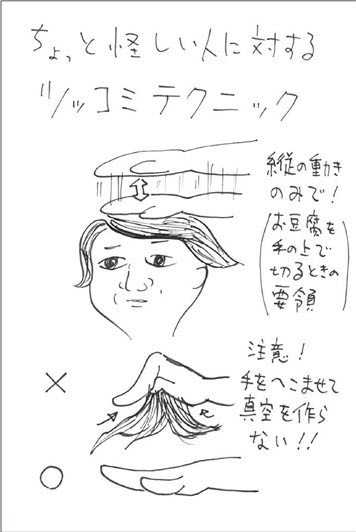 ちょっと怪しい人に対する
ツッコミテクニック
縦の動き
のみで!
(お豆腐を
手の上で
切るときの
要領)
注意!
手をへこませて
真空を作ら
ない!!
×
○